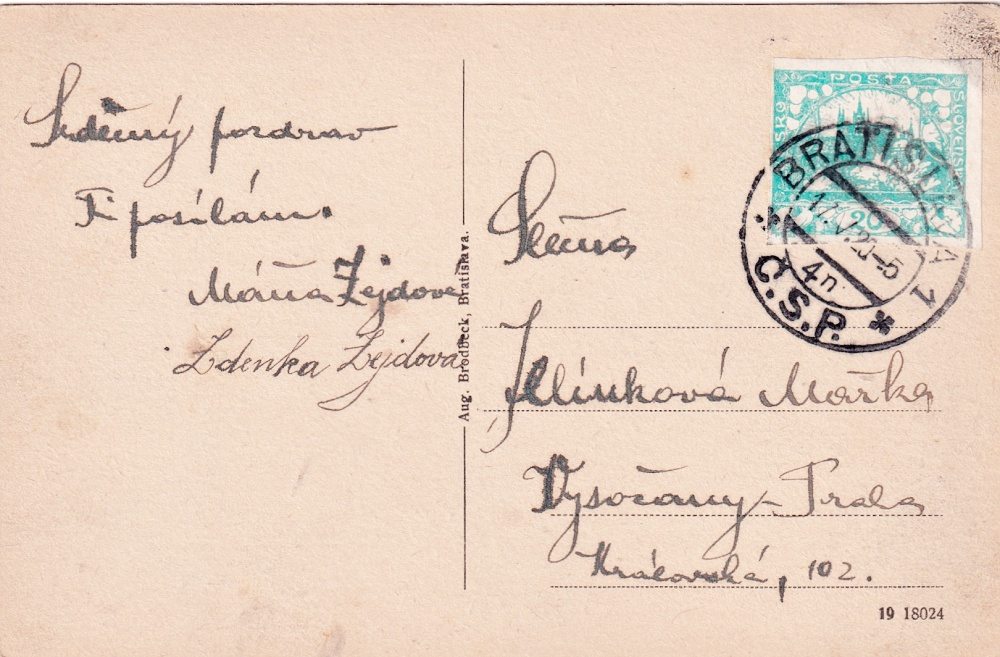 Srdečný pozdrav
Ti posílám.
Máňa Zejdová
Zdenka Zejdová
Aug. Brodbeck, Bratislava.
POŠTA
SLOVENSK
SKO
20
BRATISLAVA 1
17.V.20-5
4n.
* Č.S.P. *
Slečna
Mařka
Vysočany-Praha
Královská, 102.
19 18024